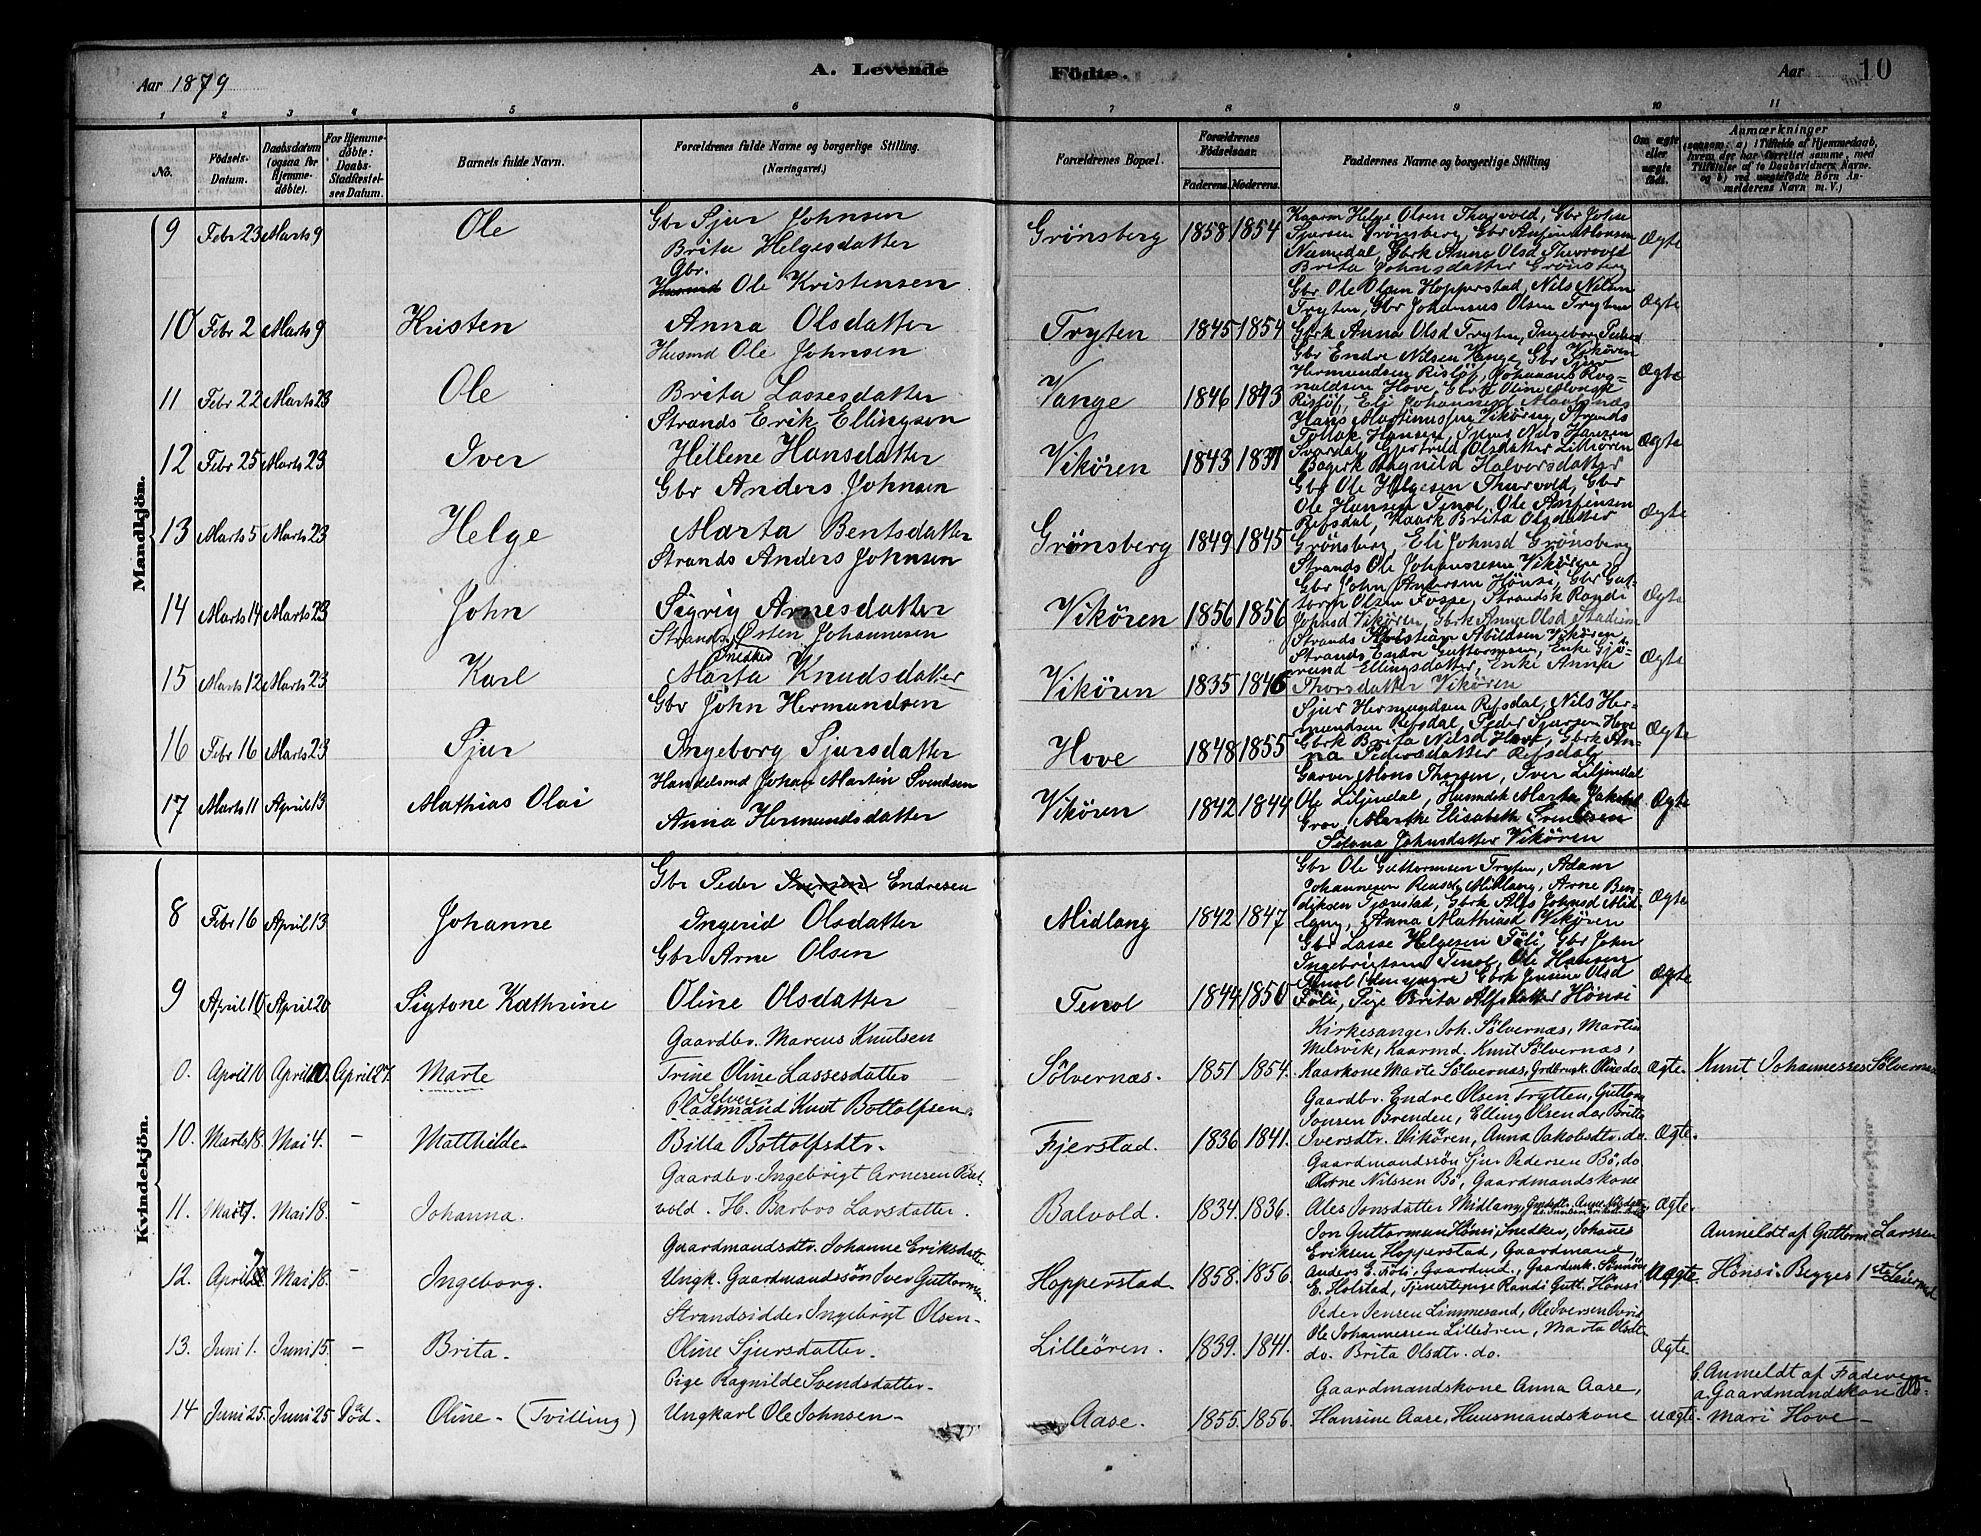 Aar 1879
A. Levende
Födte.
Aar
10
1 2 3 4 5 6 7 8 9 10 11
No.
Födsels-
Datum.
Daabsdatum
(ogsaa for
Hjemme-
döbte).
For Hjemme-
döbte:
Daabs-
Stadfæstel-
ses Datum.
Barnets fulde Navn.
Forældrenes fulde Navne og borgerlige Stilling.
(Næringsvei.)
Forældrenes Bopæl.
Forældrenes
Födselsaar.
Faderens. Moderens.
Faddernes Navne og borgerlige Stilling
Om ægte
eller
uægte
födt.
Anmærkninger
(saasom: a) i Tilfælde af Hjemmedaab,
hvem der har forrettet samme, med
Tilföielse af to Daabsvidners Navne.
og b) ved uægtefödte Börn An-
melderens Navn m. V.)
Mandkjön.
Gbr Sjur Johnsen
9 Febr 23 Marts 9 Ole
Brita Helgesdatter
Grönsberg 1858 1854
Kaarm Helge Olsen Thurvold, Gbr John
Sjursen Grönsberg, Gbr Anfin Monsen
Numedal, Gbrk Anna Olsd Thurvold
Brita Johnsdatter Grönsberg
Ægte
Gbr.
Husmd Ole Kristensen
10 Febr 2 Marts 9 Kristen
Anna Olsdatter
Tryten 1845 1854
Gbr Ole Olsen Hopperstad, Nils Nilsen
Tryten, Gbr Johannes Olsen Tryten
Gbrk Anna Olsd Tryten, Ingeborg Pedersd
Ægte
Husmd Ole Johnsen
11 Febr 22 Marts 23 Ole
Brita Lassesdatter
Vange 1846 1843
Gbr Endre Nilsen Vange, Gbr Sjur
Hermundsen Rislöf, Johannes Rog-
naldsen Hove, Gbrk Oline Monsd
Rislöf, Eli Johannesd
Ægte
Strands Erik Ellingsen
12 Febr 25 Marts 23 Iver
Hellene Hansdatter
Vikören 1843 1837
Hans Martinussen Vikören, Strands
Tollak Hansen, Nils Hansen
Svardal, Gjertrud Olsdatter Lilleören
Bagerk Ragnild Halvorsdatter
Ægte
Gbr Anders Johnsen
13 Marts 5 Marts 23 Helge
Marta Bentsdatter
Grönsberg 1849 1845
Gbr Ole Helgesen Thurvold, Gbr
Ole Hansen Tenol, Ole Anfinsen
Refsdal, Kaark Brita Olsdatter
Grönsberg, Eli Johnsd Grönsberg
Ægte
Strands Anders Johnsen
14 Marts 14 Marts 23 John
Sigrig Arnesdatter
Vikören 1856 1856
Strands Ole Johannesen Vikören,
Gbr John Andersen Hönsi, Gbr Gut-
torm Olsen Fosse, Strandsk Ragdi
Johnsd Vikören, Gbrk Anna Olsd Stadeim
Ægte
Strands Örsten Johannesen
Snedker
15 Marts 12 Marts 23 Karl
Marta Knudsdatter
Vikören 1835 1846
Strands Kristian Abildsen Vikören,
Strands Endre Guttormsen, Enke Gjö-
rund Ellingsdatter, Enke Anna
Thorsdatter Vikören
Ægte
Gbr John Hermundsen
16 Febr 16 Marts 23 Sjur
Ingeborg Sjursdatter
Hove 1848 1855
Sjur Hermundsen Refsdal, Nils Her-
mundsen Refsdal, Peder Sjursen Hove
Gbrk Brita Nilsd Hove, Gbrk An-
na Pedersdatter Refsdal
Ægte
Handelsmd Johan Martin Svendsen
17 Marts 11 April 13 Mathias Olai
Anna Hermundsdatter
Vikören 1842 1844
Garver Mons Thorsen, Iver Liljendal
Ole Liljendal, Husmdsk Marta Jakobsd
Grov, Marthe Elisabeth
Johnsdatter Vikören
Ægte
Kvindekjön.
Gbr Peder Iversen Endresen
8 Febr 16 April 13 Johanne
Ingerid Olsdatter
Midlang 1842 1847
Gbr Ole Guttormsen Tryten, Adam
Johannesen Midlang, Arne Ben-
diksen Tjænstad, Gbrk Alfs Johnsd Mid-
lang, Anna Mathiasd Vikören
Ægte
Gbr Arne Olsen
9 April 10 April 20 Sigtone Kathrine
Oline Olsdatter
Tenol 1844 1850
Gbr Lasse Helgesen Föli, Gbr John
Ingebrigtsen Tenol, Ole Hansen
Tenol (den yngre) Gbrk Jensine Olsd
Föli, Pige Brita Alfsdatter Hönsi
Ægte
Gaardbr. Marcus Knutsen
0. April 10 April 20. April 27. Marte
Trine Oline Lassesdatter
Sölvernæs. 1851 1854.
Kirkesanger Joh. Sölvernæs, Martin
Melsvik, Kaarmd. Knut Sölvernæs,
Kaarkone Marte Sölvernæs, Grdbrusk. Oline do.
Ægte. Knut Johannessen Sölvernæs
Selveier
Pladsmand Knut Bottolfsen
10. Marts 18. Mai 4. – Matthilde
Britta Bottolfsdtr.
Fjerstad. 1836 1841.
Gaardbr. Endre Olsen Trytten, Guttorm
Jonsen Brenden, Elling Olsen do, Britta
Iversdtr. Vikören, Anna Jakobsdtr. do.
Ægte.
Gaardbr. Ingebrigt Arnesen Bal-
11. Mai 18. – Johanna.
vold. H. Barbro Larsdatter.
Balvold. 1834. 1836.
Gaardmandssön Sjur Pedersen Bö, do
Arne Nilssen Bö, Gaardmandskone
Ales Jonsdatter Midlang,
Ægte.
Gaardmandsdtr. Johanne Eriksdatter
7
12. April Mai 18. – Ingeborg.
Ungk. Gaardmandssön Iver Guttormsen.
Hopperstad 1858. 1856.
Jon Guttormsen Hönsi, Snedker, Johannes
Eriksen Hopperstad, Gaardmand,
Anders E. Föli, Gaardmd., Gaardmk. Sönneve
E. Holstad, Tjenestepige Randi Gutt. Hönsi.
Uægte.
Anmeldt af Guttorm Larssen
Hönsi. Begges 1ste Leiermaal
Strandsidder Ingebrigt Olsen-
13. Juni 1. Juni 15. – Brita.
Oline Sjursdatter.
Lilleören. 1839. 1841.
Peder Jensen Limmesand, Ole Iversen
Ole Johannessen Lilleören, Marta Olsdtr.
do. Brita Olsdtr. do.
Ægte
Pige Ragnilde Svendsdatter.
14 Juni 25. Juni 25 Död. Oline. (Tvilling)
Ungkarl Ole Johnsen.
Aase. 1855. 1856.
Gaardmandskone Anna Aase,
Hansine Aase, Huusmandskone
uægte.
b. Anmeldt af Faderen
a. Gaardmandskone
Mari Hove